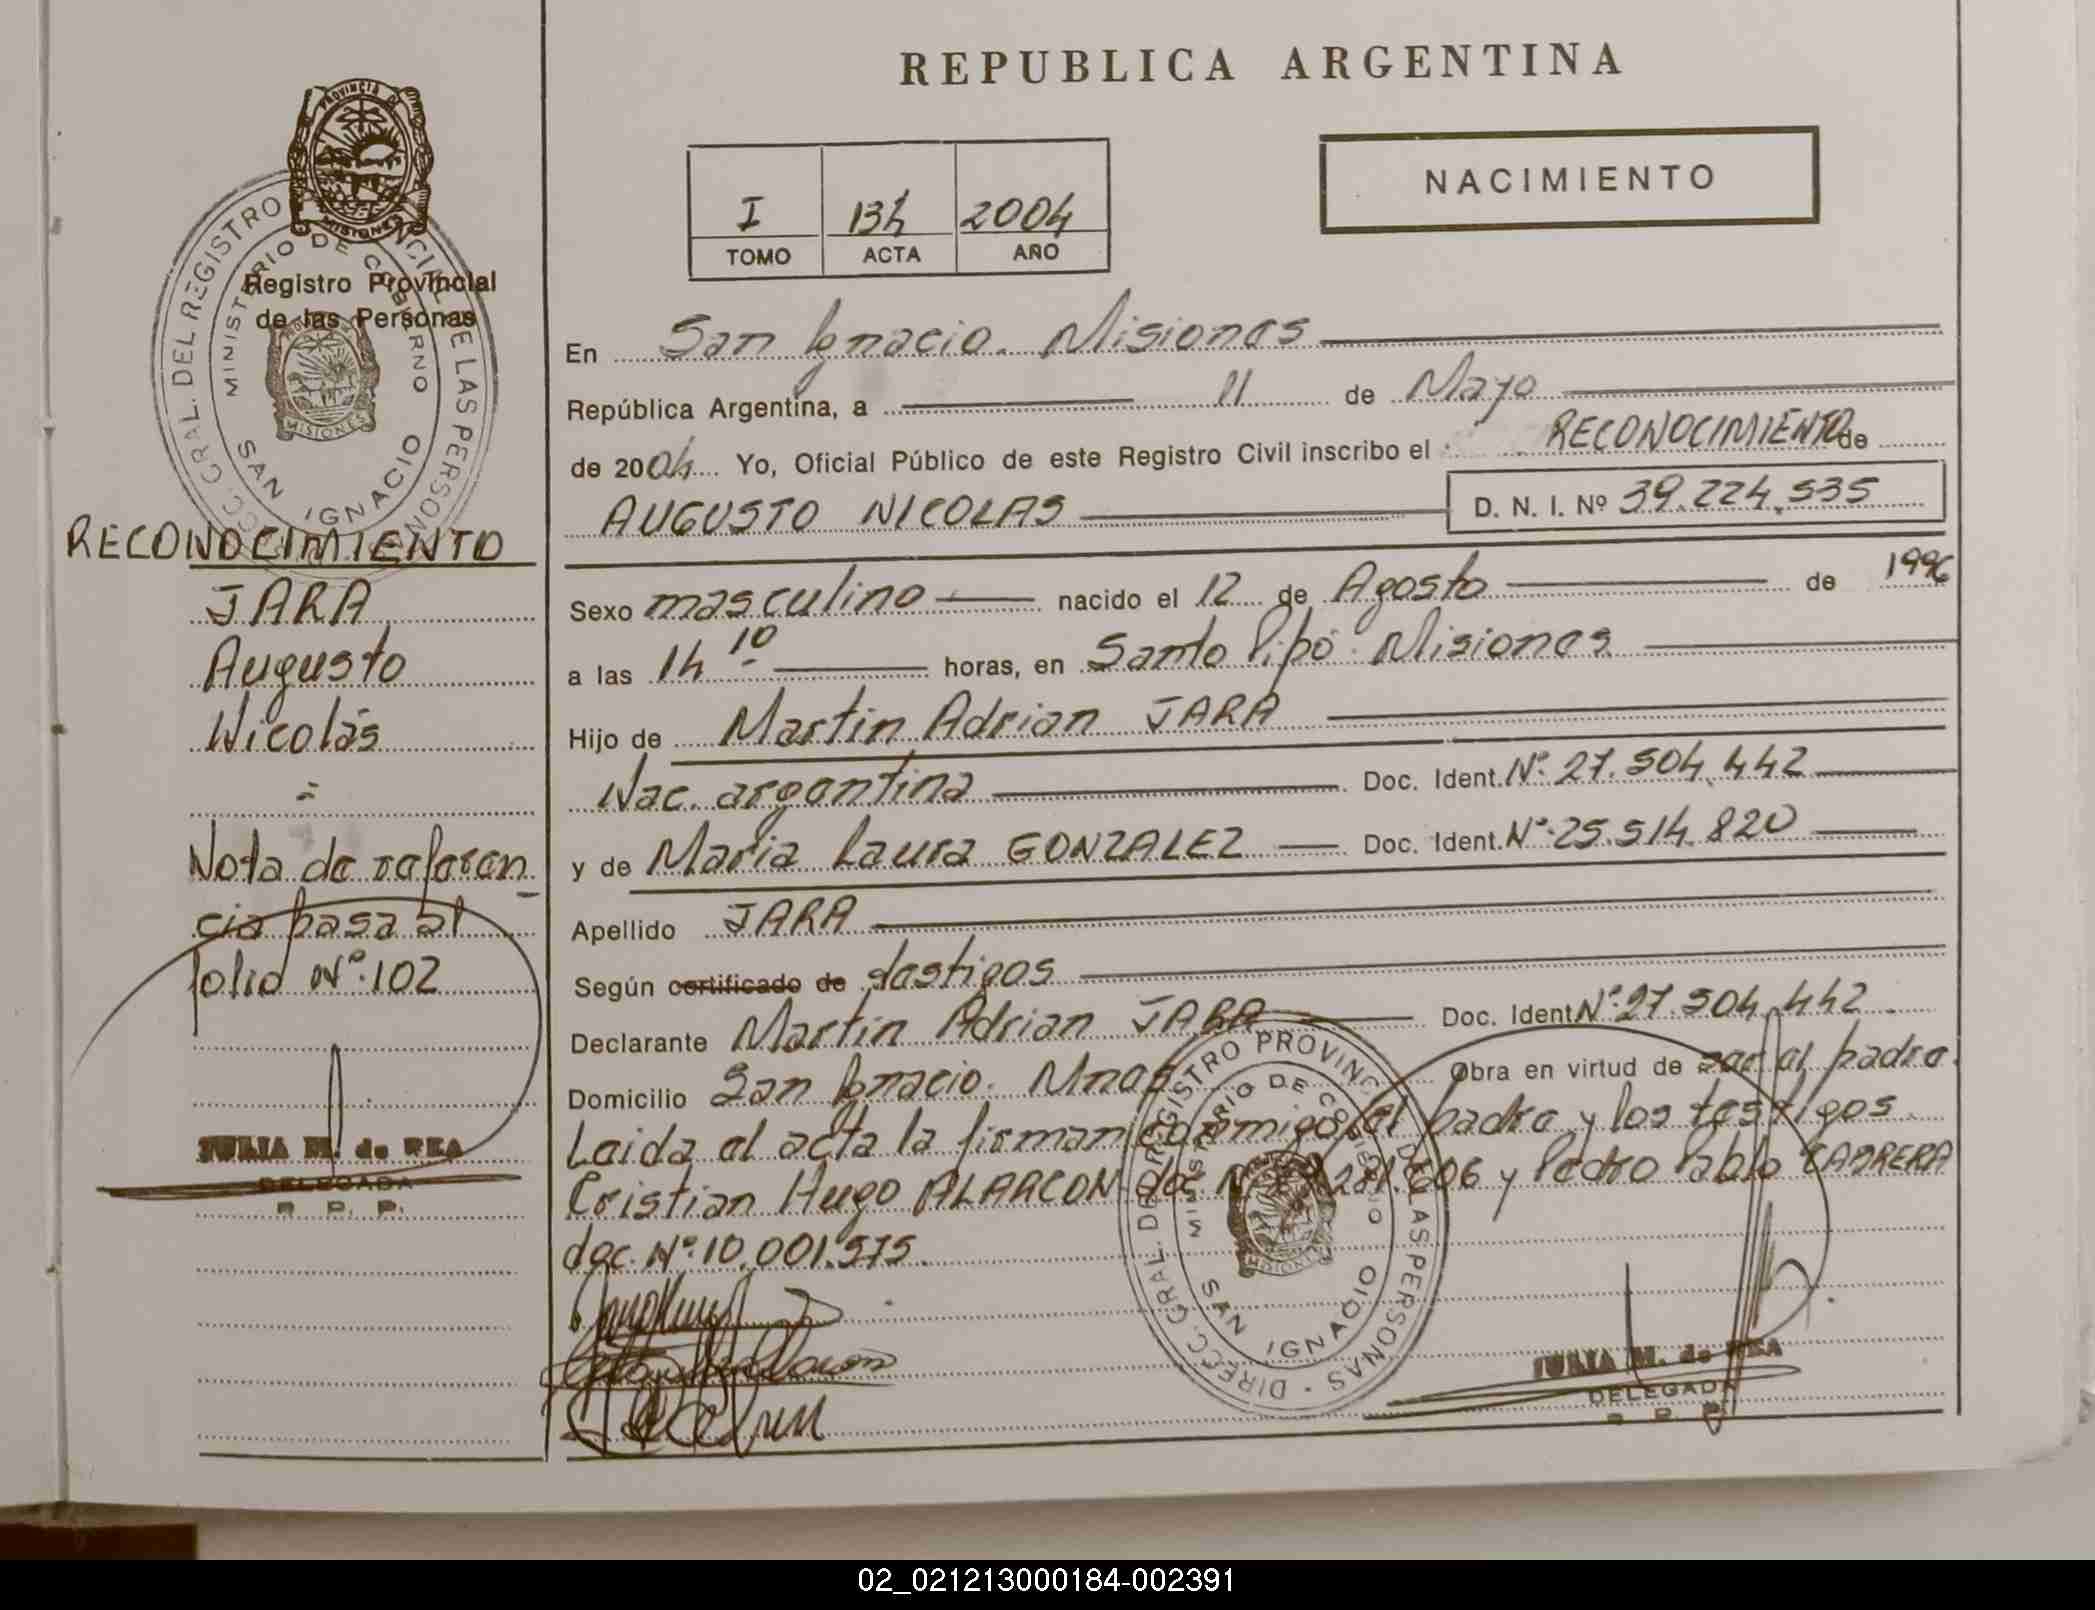 REPUBLICA ARGENTINA
NACIMIENTO
I 134 2004
TOMO ACTA AÑO
PROVINCIA DE MISIONES
Registro Provincial
de las Personas
DIRECC. GRAL. DEL REGISTRO PROVINCIAL DE LAS PERSONAS
MINISTERIO DE GOBIERNO
MISIONES
SAN IGNACIO
RECONOCIMIENTO
JARA
Augusto
Nicolás
=
Nota de referen
cia pasa al
folio Nº 102
JULIA M. de REA
DELEGADA
R. P. P.
En San Ignacio. Misiones
República Argentina, a 11 de Mayo
de 2004 Yo, Oficial Público de este Registro Civil inscribo el RECONOCIMIENTO de
AUGUSTO NICOLAS D. N. I. Nº 39.224.535
Sexo masculino nacido el 12 de Agosto de 1996
a las 14 10 horas, en Santo Pipó. Misiones
Hijo de Martin Adrian JARA
Nac. argentina Doc. Ident. Nº 27.504.442
y de Maria Laura GONZALEZ Doc. Ident. Nº 25.514.820
Apellido JARA
Según certificado de testigos
Declarante Martin Adrian JARA Doc. Ident. Nº 27.504.442
Domicilio San Ignacio. Mnes Obra en virtud de ser el padre.
Leida el acta la firman conmigo, el padre y los testigos
Cristian Hugo ALARCON doc. Nº 281.606 y Pedro Pablo CABRERA
doc. Nº 10.001.575.
DIRECC. GRAL. DEL REGISTRO PROVINCIAL DE LAS PERSONAS
MINISTERIO DE GOBIERNO
MISIONES
SAN IGNACIO
JULIA M. de REA
DELEGADA
R. P. P.
02_021213000184-002391